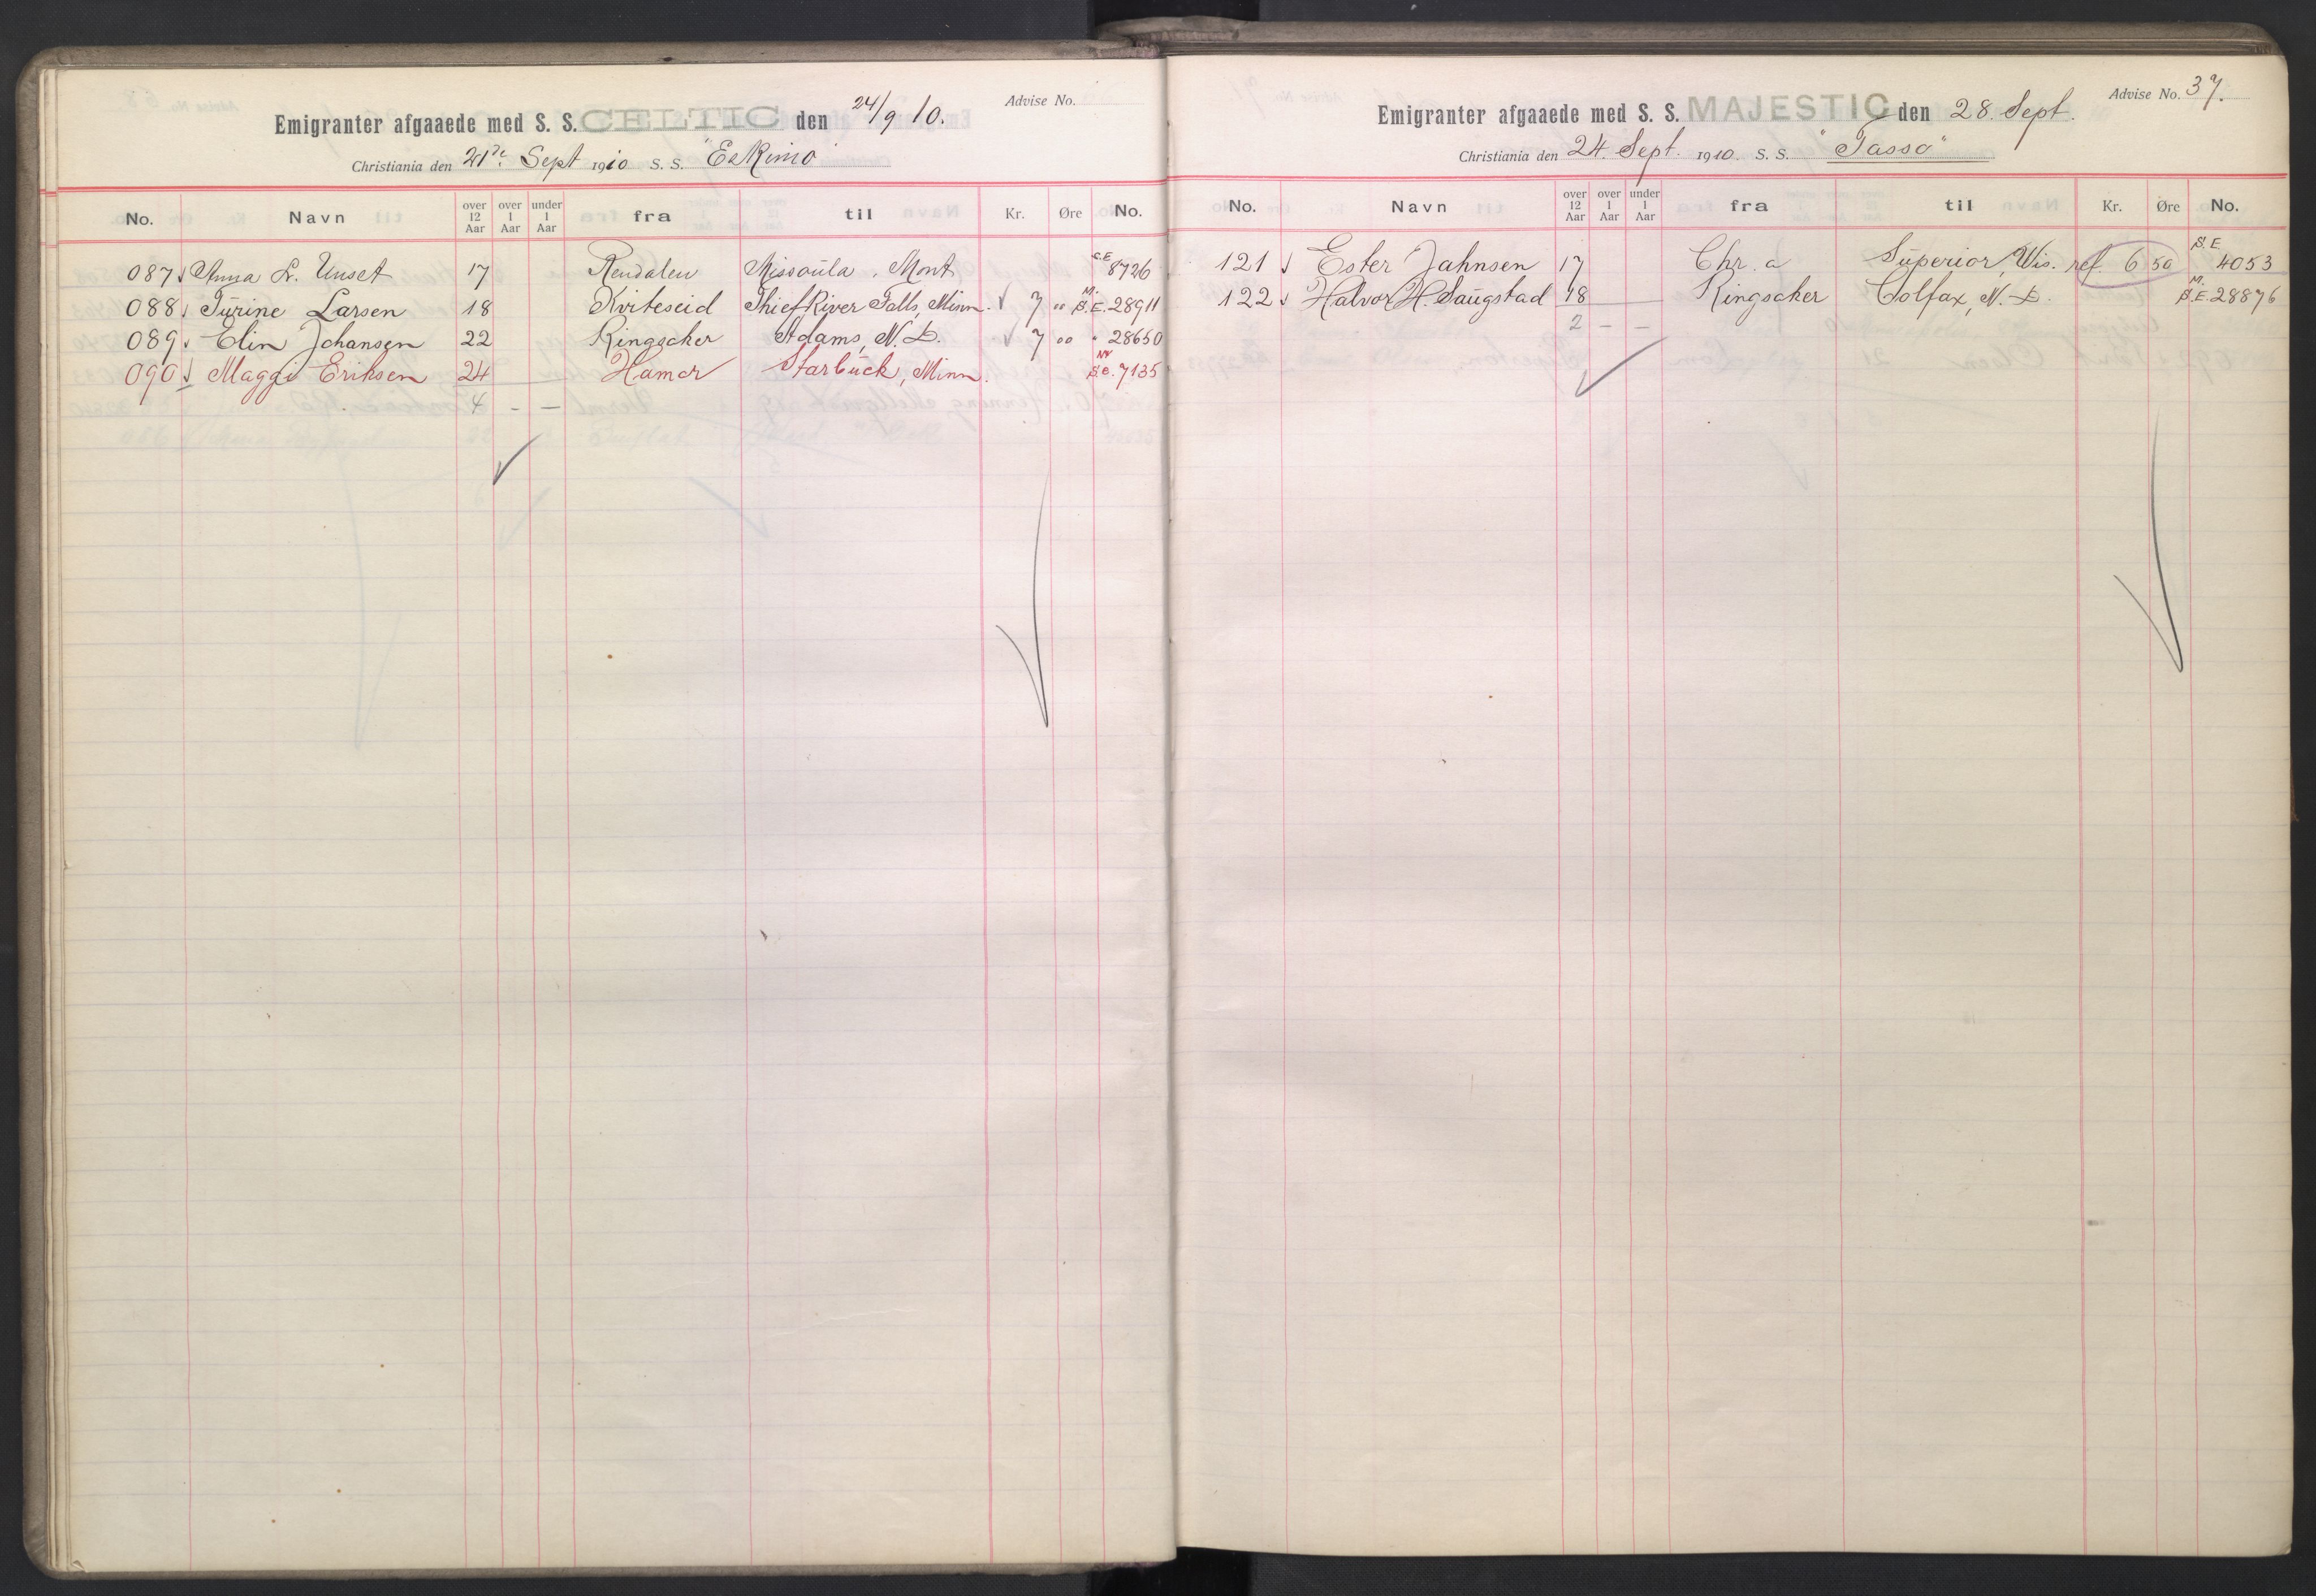 Advise No.
Emigranter afgaaede med S. S. CELTIC den 24/9 10.
Christiania den 21de Sept 1910 S. S. "Eskimo"
No. Navn over 12 Aar over 1 Aar under 1 Aar fra til Kr. Øre No.
087 Anna L. Unset 17 Rendalen Missoula, Mont S.E. 8726
088 Turine Larsen 18 Kviteseid Thief River Falls, Minn. 7 00 M. S.E. 28911
089 Elin Johansen 22 Ringsaker Adams, N. D. 7 00 " 28650
090 Maggi Eriksen 24 Hamar Starbuck, Minn. NY S.E. 7135
4 - -
Advise No. 37.
Emigranter afgaaede med S. S. MAJESTIC den 28. Sept.
Christiania den 24. Sept. 1910. S. S. "Tasso"
No. Navn over 12 Aar over 1 Aar under 1 Aar fra til Kr. Øre No.
121 Ester Jahnsen 17 Chr.a Superior, Wis. ref. 6 50 S.E. 4053
122 Halvor H. Saugstad 18 Ringsaker Colfax, N. D. M. S.E. 28876
2 - -